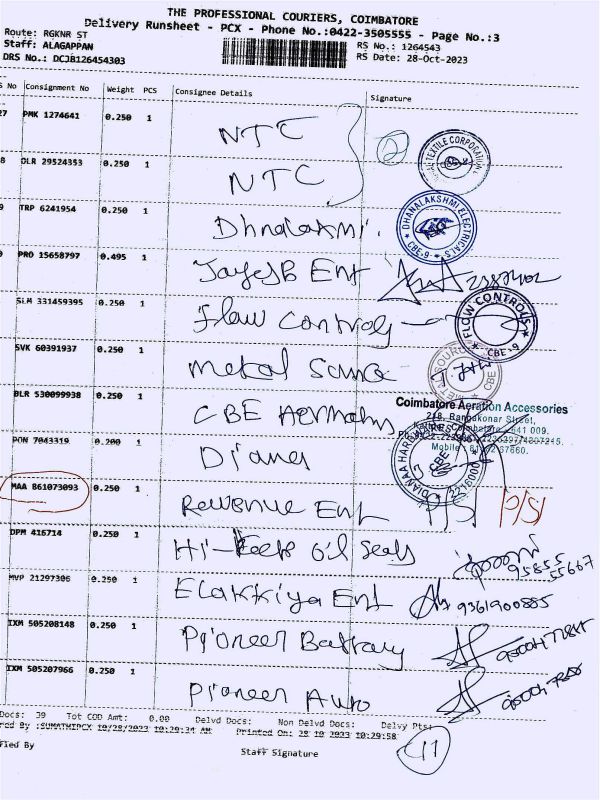 THE PROFESSIONAL COURIERS, COIMBATORE
Delivery Runsheet - PCX - Phone No.:0422-3505555 - Page No.:3
Route: RGKNR ST
Staff: ALAGAPPAN
DRS No.: DCJ8126454303
RS No.: 1264543
RS Date: 28-Oct-2023
S No Consignment No Weight PCS Consignee Details Signature
27 PMK 1274641 0.250 1 NTC
8 DLR 29524353 0.250 1 NTC
2
TEXTILE CORPORATION
9 TRP 6241954 0.250 1 Dhnalaxmi.
DHANALAKSHMI ELECTRICALS
CBE-9
0 PRO 15658797 0.495 1 Ent
SLM 331459395 0.250 1 Flow Controls
FLOW CONTROLS
CBE-9
SVK 60391937 0.250 1 Metal
CBE
BLR 530099938 0.250 1 CBE
Coimbatore Aeration Accessories
218, Rangakonar Street,
Coimbatore - 641 009.
Mobile
PON 7043319 0.200 1
DIANAA HARDWARES
CBE
MAA 861073093 0.250 1 Revenue Ent P/S P/S
DPM 416714 0.250 1 Hi- Oil Seals
95855
55667
MVP 21297306 0.250 1 Elakkiya Ent 9361900885
IXM 505208148 0.250 1 Pioneer Battary
IXM 505207966 0.250 1 Pioneer Auto
Docs: 39 Tot COD Amt: 0.00 Delvd Docs: Non Delvd Docs: Delvy Pts:
ed By :SUMATHIPCX 10/28/2023 10:29:34 AM Printed On: 28 10 2023 10:29:58
11
fied By Staff Signature